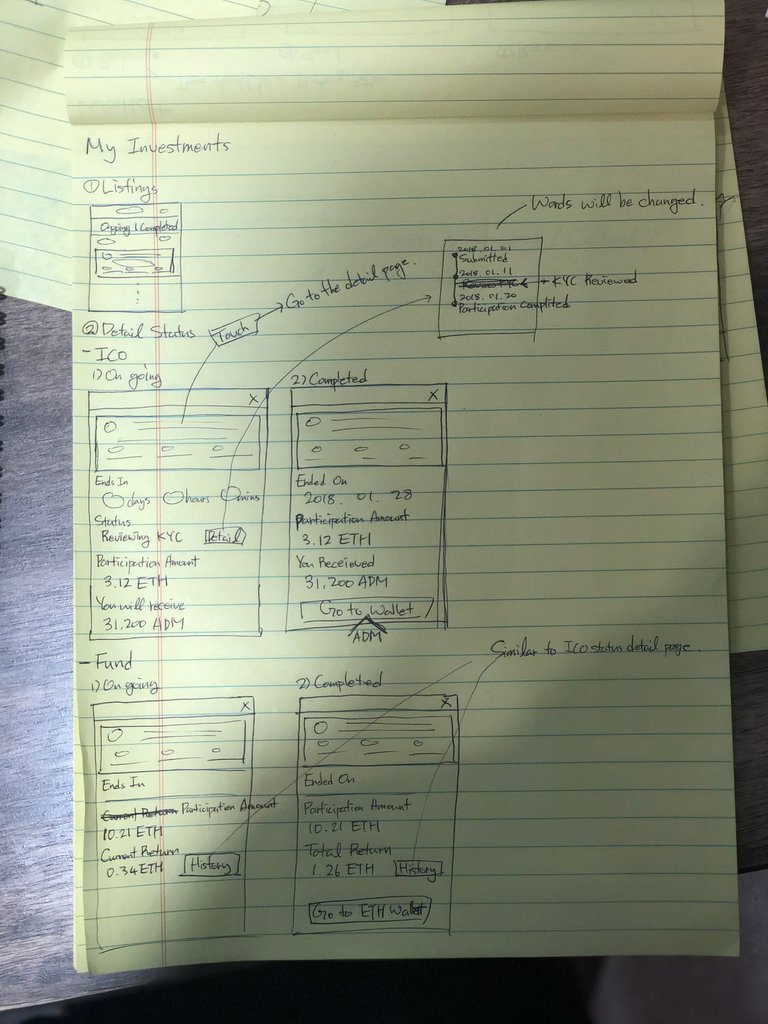 My Investments
① Listings
Ongoing | Completed
Words will be changed.
2018. 01. 01
Submitted
2018. 01. 11
Review KYC ← KYC Reviewed
2018. 01. 20
Participation Complited
Touch → Go to the detail page.
② Detail Status
- ICO
1) On going
X
Ends In
days hours mins
Status
Reviewing KYC Detail
Participation Amount
3.12 ETH
You will receive
31,200 ADM
2) Completed
X
Ended On
2018. 01. 28
Participation Amount
3.12 ETH
You Receieved
31,200 ADM
Go to Wallet
ADM
- Fund
Similar to ICO status detail page.
1) On going
X
Ends In
Current Return Participation Amount
10.21 ETH
Current Return
0.34 ETH History
2) Completed
X
Ended On
Participation Amount
10.21 ETH
Total Return
1.26 ETH History
Go to ETH Wallet